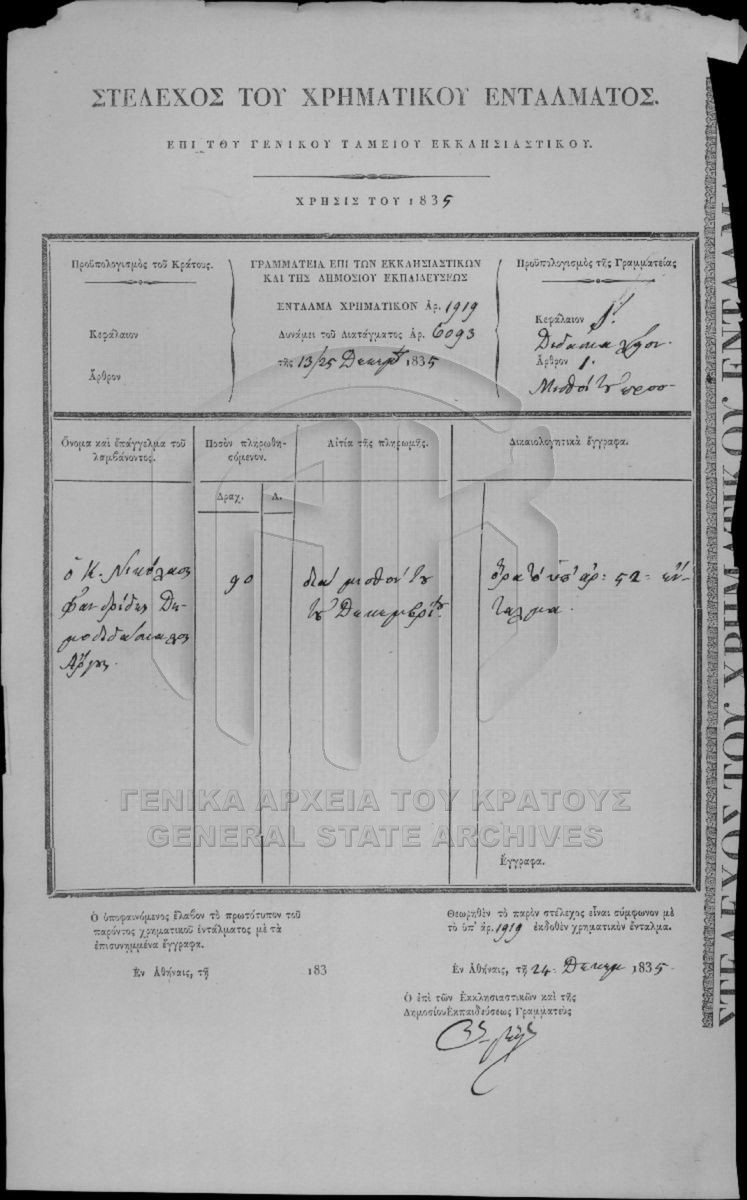 ΣΤΕΛΕΧΟΣ ΤΟΥ ΧΡΗΜΑΤΙΚΟΥ ΕΝΤΑΛΜΑΤΟΣ.
ΕΠΙ ΤΟΥ ΓΕΝΙΚΟΥ ΤΑΜΕΙΟΥ ΕΚΚΛΗΣΙΑΣΤΙΚΟΥ.
ΧΡΗΣΙΣ ΤΟΥ 1835
Προϋπολογισμὸς τοῦ Κράτους.
Κεφάλαιον
Ἄρθρον
ΓΡΑΜΜΑΤΕΙΑ ΕΠΙ ΤΩΝ ΕΚΚΛΗΣΙΑΣΤΙΚΩΝ
ΚΑΙ ΤΗΣ ΔΗΜΟΣΙΟΥ ΕΚΠΑΙΔΕΥΣΕΩΣ
ΕΝΤΑΛΜΑ ΧΡΗΜΑΤΙΚΟΝ Ἀρ. 1919
Δυνάμει τοῦ Διατάγματος Ἀρ. 6093
τῆς 13/25 Δεκεμ 1835
Προϋπολογισμὸς τῆς Γραμματείας
Κεφάλαιον
Ἄρθρον 1.
Μισθοὶ
Ὄνομα καὶ ἐπάγγελμα τοῦ
λαμβάνοντος.
Ποσὸν πληρωθη-
σόμενον.
Δραχ. Λ.
Αἰτία τῆς πληρωμῆς.
Δικαιολογητικὰ ἔγγραφα.
ὁ Κ. Νικόλαος
Δη-
μοδιδάσκαλος
Ἄργους.
90
διὰ μισθόν του
τοῦ Δεκεμβρίου.
ὅρα τὸ ὑπ' ἀρ: 52 = ἔν-
ταλμα.
Ἔγγραφα.
ΓΕΝΙΚΑ ΑΡΧΕΙΑ ΤΟΥ ΚΡΑΤΟΥΣ
GENERAL STATE ARCHIVES
Ὁ ὑποφαινόμενος ἔλαβον τὸ πρωτότυπον τοῦ
παρόντος χρηματικοῦ ἐντάλματος μὲ τὰ
ἐπισυνημμένα ἔγγραφα.
Ἐν Ἀθήναις, τῇ 183
Θεωρηθὲν τὸ παρὸν στέλεχος εἶναι σύμφωνον μὲ
τὸ ὑπ' ἀρ. 1919 ἐκδοθὲν χρηματικὸν ἔνταλμα.
Ἐν Ἀθήναις, τῇ 24 Δεκεμ 1835.
Ὁ ἐπὶ τῶν Ἐκκλησιαστικῶν καὶ τῆς
Δημοσίου Ἐκπαιδεύσεως Γραμματεὺς
ΣΤΕΛΕΧΟΣ ΤΟΥ ΧΡΗΜΑΤΙΚΟΥ ΕΝΤΑΛΜΑ